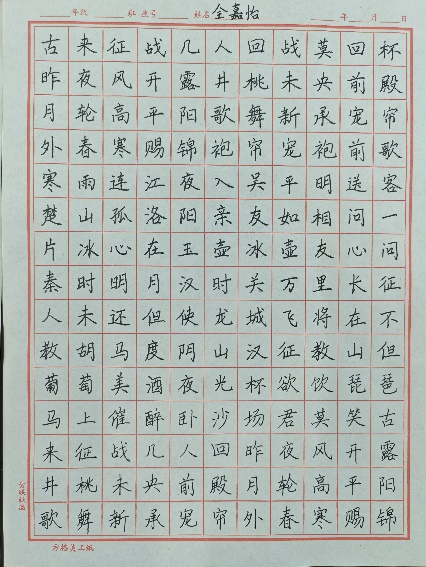 年级 班 座号 姓名 全嘉怡 年 月 日
古来征战几人回战莫回杯
昨夜风开露井桃未央前殿
月轮高平阳歌舞新承宠帘
外春寒赐锦袍帘宠袍前歌
寒雨连江夜入吴平明送客
楚山孤洛阳亲友如相问一
片冰心在玉壶冰壶友心问
秦时明月汉时关万里长征
人未还但使龙城飞将在不
教胡马度阴山汉征教山但
葡萄美酒夜光杯欲饮琵琶
马上催醉卧沙场君莫笑古
来征战几人回昨夜风开露
井桃未央前殿月轮高平阳
歌舞新承宠帘外春寒赐锦
方格美工纸